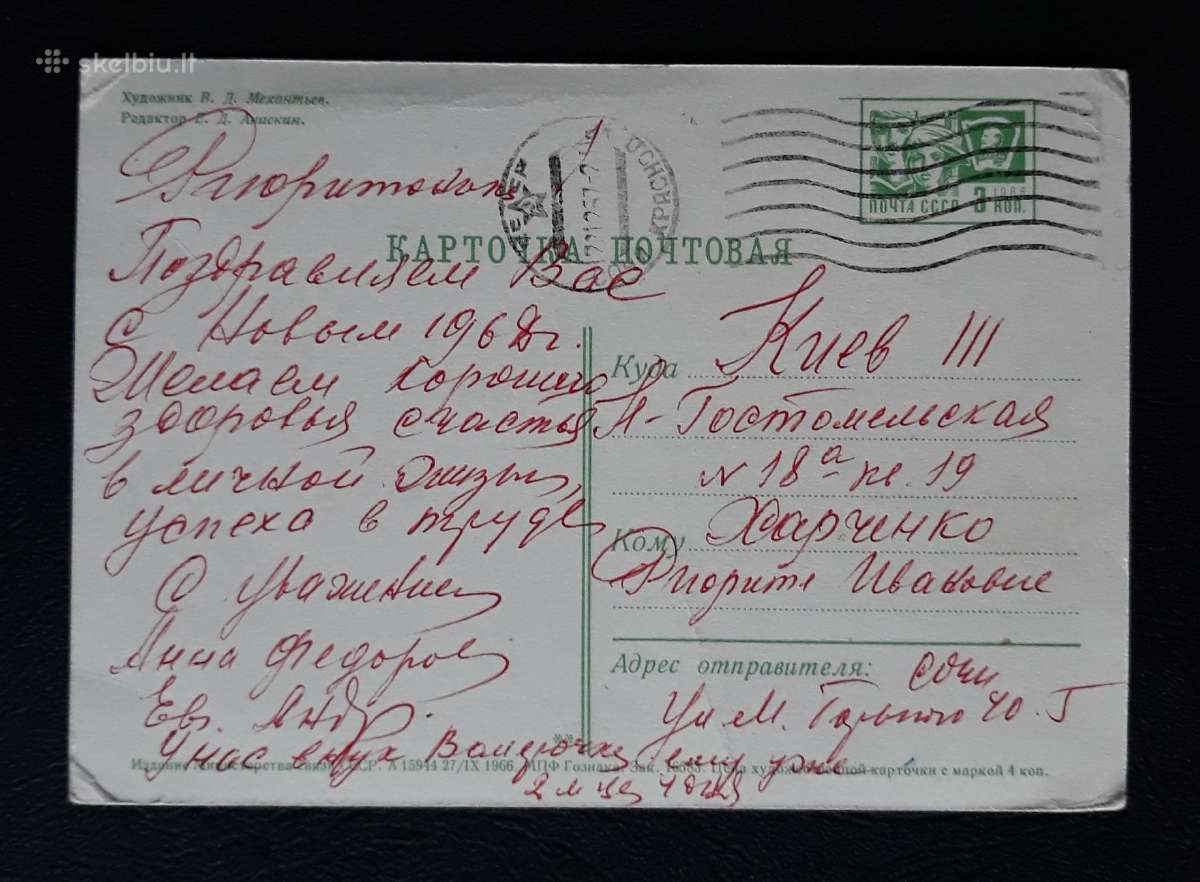 skelbiu.lt
Художник В. Д. Механтьев.
Редактор Е. Д. Анискин.
ПОЧТА СССР 3 КОП.
1966
КАРТОЧКА ПОЧТОВАЯ
Поздравляем Вас
с Новым 1968 г.
Желаем хорошего
здоровья счастья
в личной жизни,
успеха в труде
С уважением
Анна Федоров
Евг. Андр.
У нас внук Валерочка ему уже
2 м-ца 4 дня
Куда Киев 111
Гостомельская
N 18а кв. 19
Кому Харченко
Флорите Ивановне
Адрес отправителя: Сочи
Ул М. Горького 40.
Издание Министерства связи СССР. А 15944 27/IX 1966. МПФ Гознака. Зак. Цена художественной карточки с маркой 4 коп.